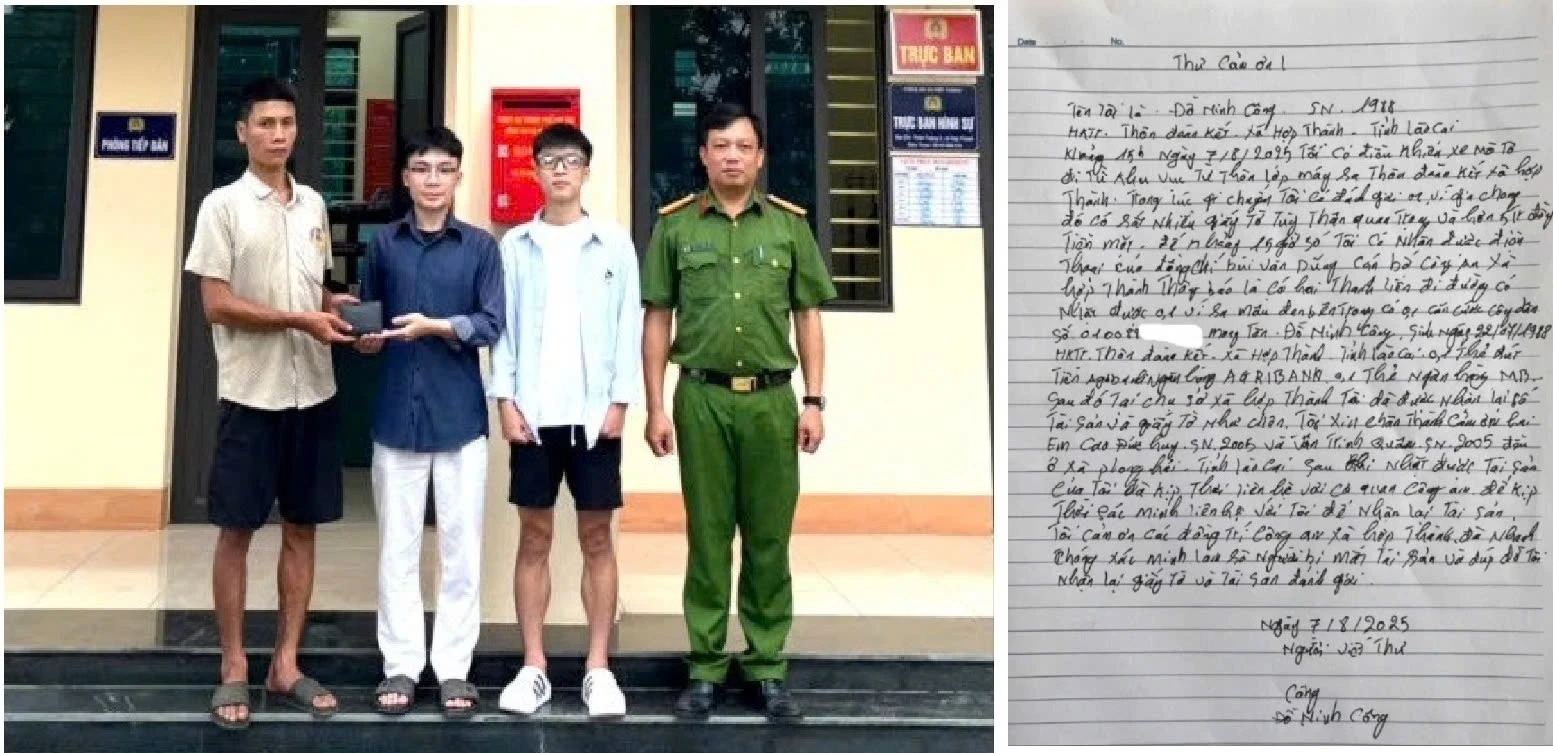 PHÒNG TIẾP DÂN
TRỰC BAN
TRỰC BAN HÌNH SỰ
Date No.
Thư Cảm ơn!
Tên Tôi là. Đỗ Minh Công. SN. 1988
HKTT. Thôn đoàn Kết. Xã Hợp Thành. Tỉnh Lào Cai
Khoảng 15h Ngày 7/8/2025 Tôi Có điều Khiển Xe Mô Tô
đi Từ Khu Vực Từ Thôn Lắp máy Sa Thôn đoàn Kết Xã hợp
Thành. Trong lúc di chuyển Tôi Có đánh gơi 01 ví da chong
đó Có Rất Nhiều giấy Tờ Tùy Thân quan Trọng và
Tiền mặt. đến Khoảng 15 giờ Tôi Có Nhận được điện
Thoại của đồng chí bùi Văn Dũng Cán bộ Công An Xã
hợp Thành Thông báo là Có hai Thanh liên đi đường có
Nhặt được 01 ví Da màu đen bên Trong có 01 căn cước công dân
Số. 010088 mang Tên. Đỗ Minh Công, Sinh Ngày /1988
HKTT. Thôn đoàn Kết. Xã Hợp Thành. Tỉnh Lào Cai. 01 Thẻ Rút
Tiền Ngân hàng AGRIBANK. 01 Thẻ Ngân hàng MB.
Sau đó Tại chụ Sở Xã hợp Thành Tôi đã được Nhận lại Số
Tài Sản và giấy Tờ Như chên. Tôi Xin chân Thành Cảm ơn hai
Em Cao Đức huy. SN. 2005 và Văn Trịnh Quân. SN. 2005 đều
ở Xã phong hải. Tỉnh lào Cai Sau Khi Nhặt được Tài Sản
Của Tôi đã Kịp Thời liên hệ với Cơ quan Công an. để Kịp
Thời Sác Minh liên hệ với Tôi để Nhận lại Tài Sản.
Tôi cảm ơn Các đồng Trí Công an Xã hợp Thành đã Nhanh
Chóng xác minh Người bị mất Tài Sản và dúp đỡ Tôi
Nhận lại giấy Tờ và Tài San đánh gơi.
Ngày 7/8/2025
Người viết Thư
Công
Đỗ Minh Công